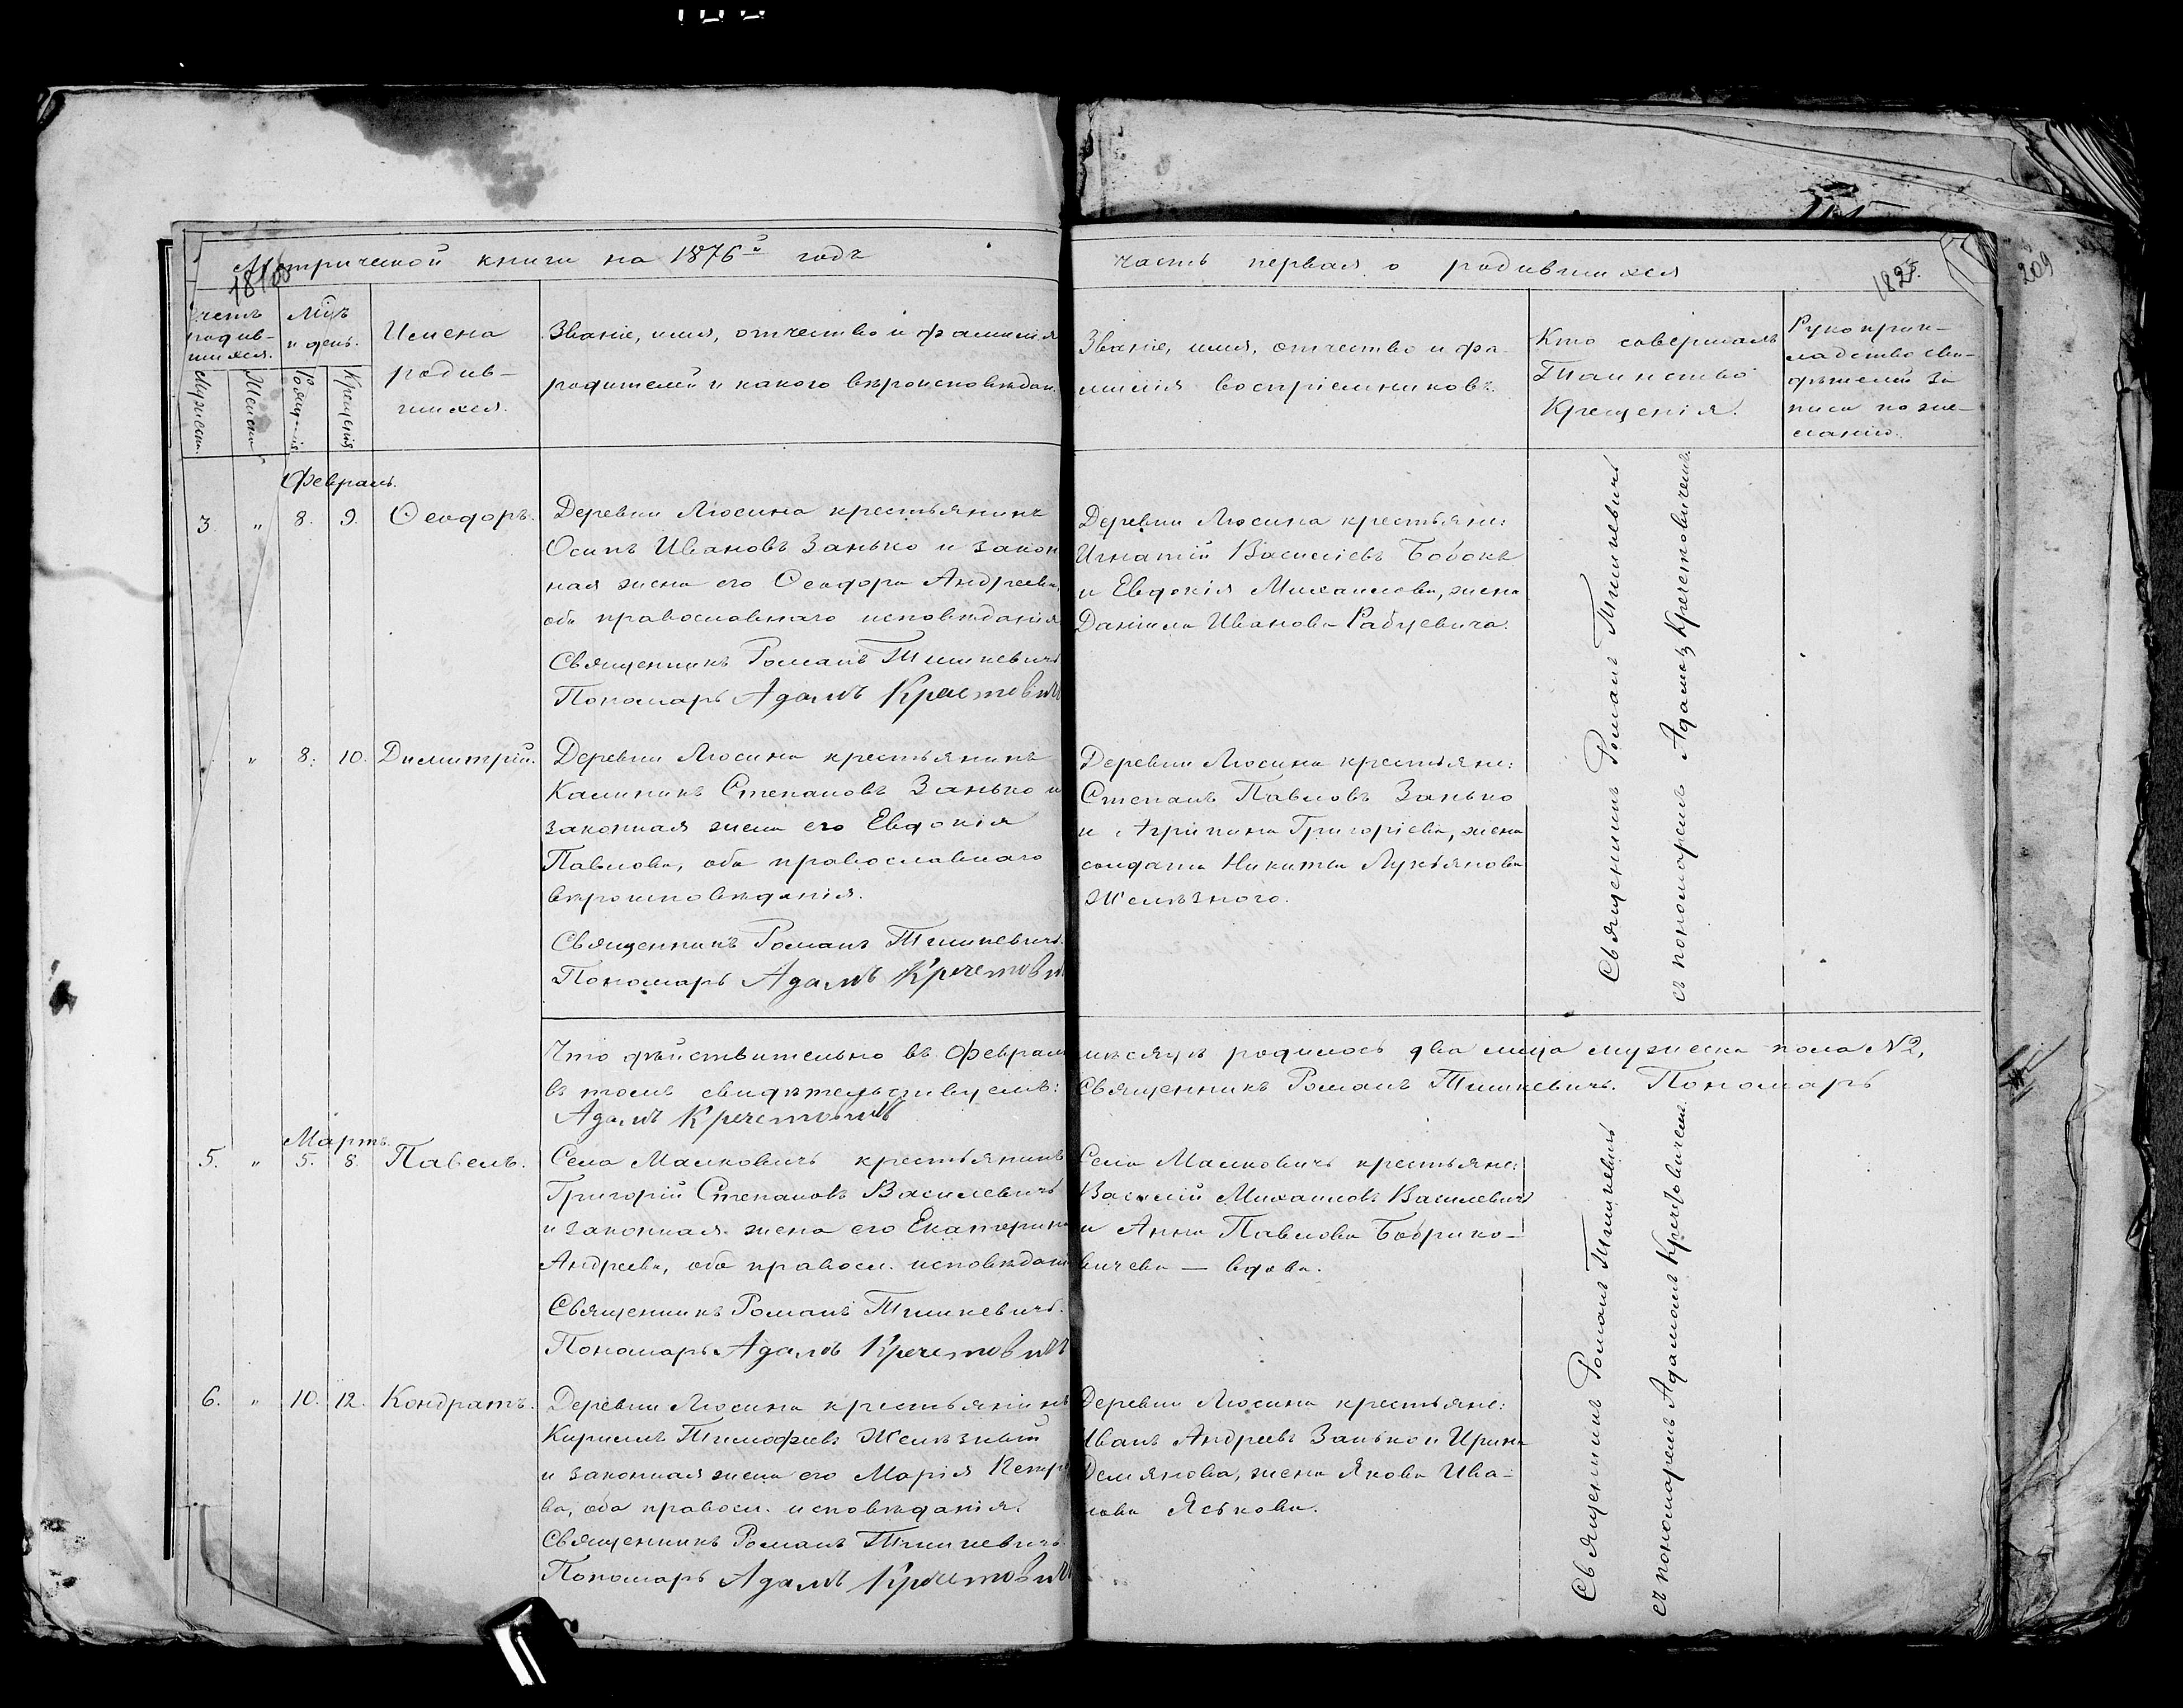 Метрической книги на 1876й годъ
часть первая о родившихся
182
209
Счетъ родив-
шихся.
Мцъ
и день.
Имена
родив-
шихся.
Званіе, имя, отчество и фамилія
родителей и какого вѣроисповѣдан.
Званіе, имя, отчество и фа-
милія воспріемниковъ.
Кто совершалъ
Таинство
Крещенія.
Рукоприк-
ладство сви-
дѣтелей за-
писи по же-
ланію.
Мужеск.
Женск.
Рожденія
Крещенія
Февраль.
3 „ 8. 9. Ѳеодоръ.
Деревни Люсина крестьянинъ
Осипъ Ивановъ Занько и закон
ная жена его Ѳеодора Андреева,
оба православнаго исповѣданія
Священникъ Романъ Тишкевичъ
Пономарь Адамъ Кречетовичъ
Деревни Люсина крестьяне:
Игнатій Василіевъ Бобокъ
и Евдокія Михаилова, жена
Даніила Иванова Рабцевича.
Священникъ Романъ Тишкевичъ
съ пономаремъ Адамомъ Кречетовичемъ.
„ 8. 10. Димитрій.
Деревни Люсина крестьянинъ
Калиникъ Степановъ Занько и
законная жена его Евдокія
Павлова, оба православнаго
вѣроисповѣданія.
Священникъ Романъ Тишкевичъ.
Пономарь Адамъ Кречетовичъ
Деревни Люсина крестьяне:
Степанъ Павловъ Занько
и Агрипина Григоріева, жена
солдата Никиты Лукьянова
Желѣзного.
Что дѣйствительно въ Февралѣ мѣсяцѣ родилось два лица мужеска пола №2,
въ томъ свидѣтельствуемъ: Священникъ Романъ Тишкевичъ. Пономарь
Адамъ Кречетовичъ
Мартъ.
5. „ 5. 8. Павелъ.
Села Малковичъ крестьянинъ
Григорій Степановъ Василевичъ
и законная жена его Екатерина
Андреева, оба правосл. исповѣдан
Священникъ Романъ Тишкевичъ.
Пономарь Адамъ Кречетовичъ
Села Малковичъ крестьяне:
Василій Михаиловъ Василевичъ
и Анна Павлова Боврико-
вичева — вдова.
Священникъ Романъ Тишкевичъ
съ пономаремъ Адамомъ Кречетовичемъ.
6. „ 10. 12. Кондратъ.
Деревни Люсина крестьянинъ
Кириллъ Тимофеевъ Желѣзный
и законная жена его Марія Петро
ва, оба правосл. исповѣданія.
Священникъ Романъ Тишкевичъ.
Пономарь Адамъ Кречетовичъ
Деревни Люсина крестьяне:
Иванъ Андреевъ Занько и Ирина
Демянова, жена Якова Ива-
нова Яськова.